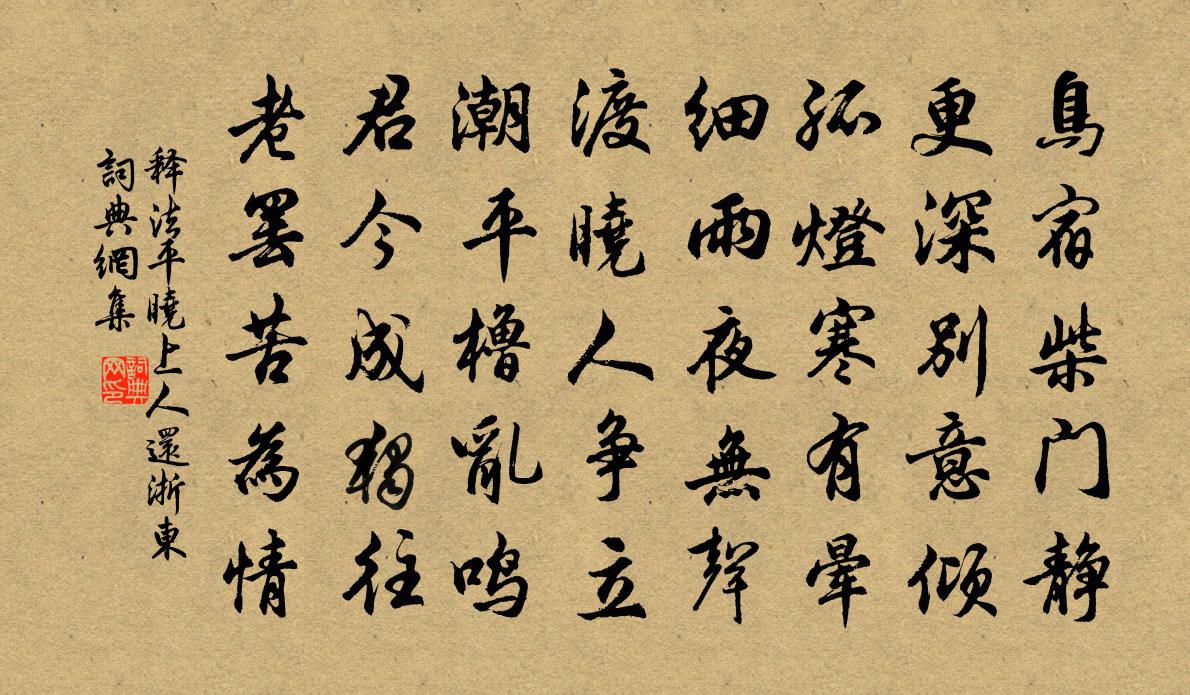 鳥宿柴门静
更深别意傾
孤燈寒有暈
細雨夜無聲
渡曉人争立
潮平櫓亂鳴
君今成獨往
老罢苦為情
释法平曉上人還浙東
詞典網集
詞典
网印